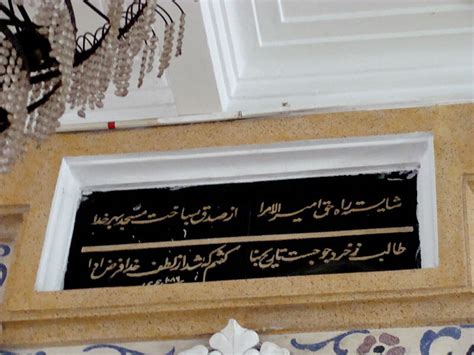 شایسته راه حق امیر الامرا از صدق بساخت مسجد بهر خدا
طالب ز خرد چو جست تاریخ بنا گفتم که شد از لطف خدا فرض ادا